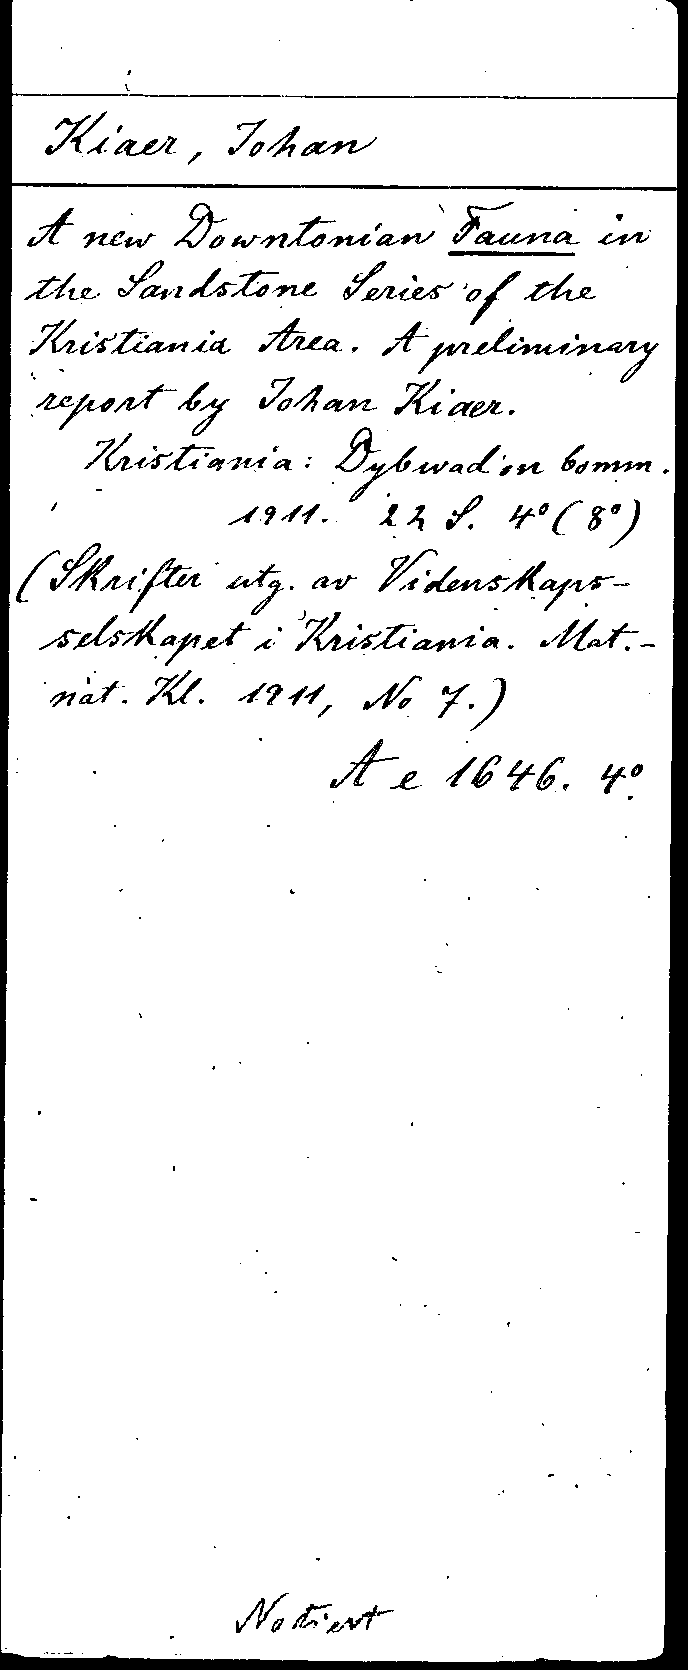 Kiaer, Johan
A new Downtonian Fauna in
the Sandstone Series of the
Kristiania Area. A preliminary
report by Johan Kiaer.
Kristiania: Dybwad in Komm.
1911. 22 S. 4° (8°)
(Skrifter utg. av Videnskaps-
selskapet i Kristiania. Mat.-
nat. Kl. 1911, No 7.)
A e 1646. 4°.
Notiert